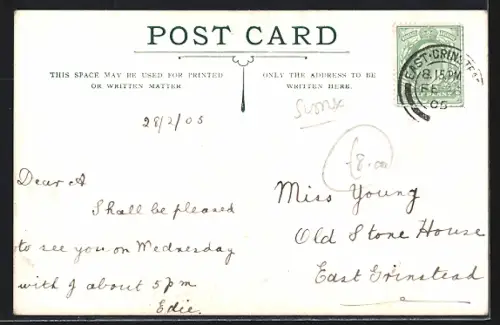 POST CARD
THIS SPACE MAY BE USED FOR PRINTED
OR WRITTEN MATTER
ONLY THE ADDRESS TO BE
WRITTEN HERE.
EAST-GRINSTEAD
8.15 PM
FE
05
28/2/05
£8.00
Dear A
Shall be pleased
to see you on Wednesday
with J about 5 pm
Edie.
Miss Young
Old Stone House
East Grinstead